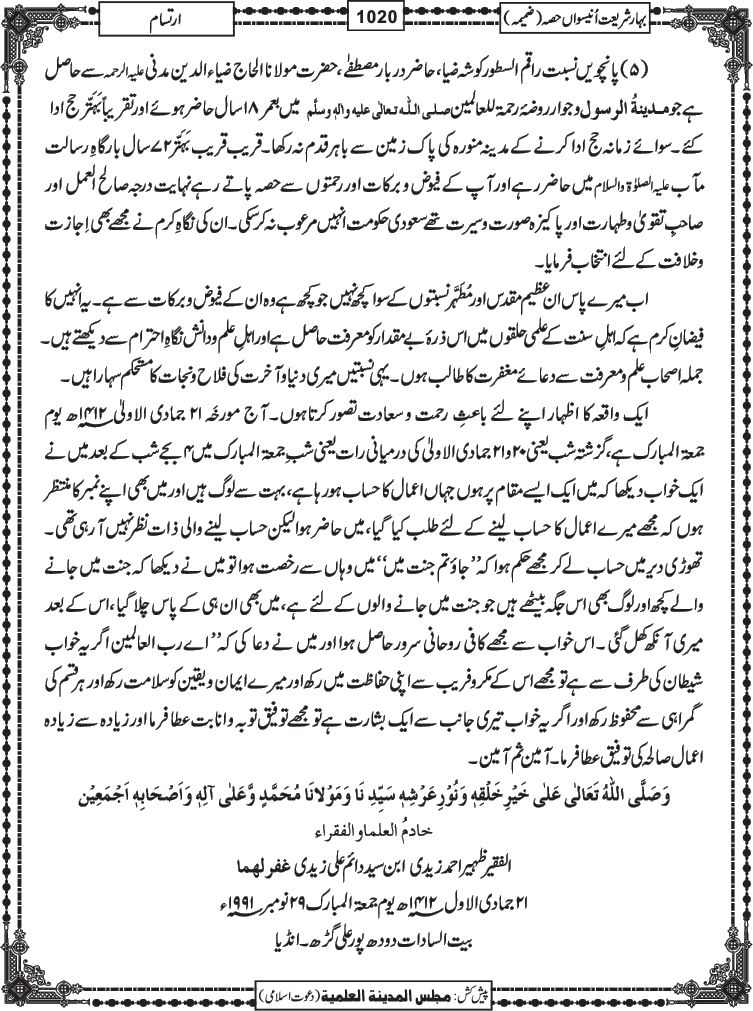 بہارِ شریعت اُنیسواں حصہ (ضمیمہ)
1020
ارتسام
(۵) پانچویں نسبت راقم السطور کو شہ ضیا، حاضر دربار مصطفےٰ، حضرت مولانا الحاج ضیاء الدین مدنی علیہ الرحمہ سے حاصل
ہے جو مدینۃ الرسول وجوار روضۂ رحمۃ للعالمین صلی اللہ تعالٰی علیہ واٰلہٖ وسلَّم میں بعمر ۱۸ سال حاضر ہوئے اور تقریباً بَہتَّر حج ادا
کئے۔ سوائے زمانہ حج ادا کرنے کے مدینہ منورہ کی پاک زمین سے باہر قدم نہ رکھا۔ قریب قریب بَہتَّر ۷۲ سال بارگاہِ رسالت
مآب علیہ الصلوٰۃ والسلام میں حاضر رہے اور آپ کے فیوض و برکات اور رحمتوں سے حصہ پاتے رہے نہایت درجہ صالح العمل اور
صاحبِ تقویٰ وطہارت اور پاکیزہ صورت وسیرت تھے سعودی حکومت انہیں مرعوب نہ کرسکی۔ ان کی نگاہِ کرم نے مجھے بھی اِجازت
وخلافت کے لئے انتخاب فرمایا۔
اب میرے پاس ان عظیم مقدس اور مُطہَّر نسبتوں کے سوا کچھ نہیں جو کچھ ہے وہ ان کے فیوض و برکات سے ہے۔ یہ انہیں کا
فیضانِ کرم ہے کہ اہلِ سنت کے علمی حلقوں میں اس ذرۂ بے مقدار کو معرفت حاصل ہے اور اہلِ علم و دانش نگاہِ احترام سے دیکھتے ہیں۔
جملہ اصحابِ علم و معرفت سے دعائے مغفرت کا طالب ہوں۔ یہی نسبتیں میری دنیا و آخرت کی فلاح و نجات کا مستحکم سہارا ہیں۔
ایک واقعہ کا اظہار اپنے لئے باعثِ رحمت و سعادت تصور کرتا ہوں۔ آج مورخہ ۲۱ جمادی الاولیٰ ۱۴۱۲ھ یوم
جمعۃ المبارک ہے، گزشتہ شب یعنی ۲۰ و ۲۱ جمادی الاولیٰ کی درمیانی رات یعنی شبِ جمعۃ المبارک میں ۴ بجے شب کے بعد میں نے
ایک خواب دیکھا کہ میں ایک ایسے مقام پر ہوں جہاں اعمال کا حساب ہورہا ہے، بہت سے لوگ ہیں اور میں بھی اپنے نمبر کا منتظر
ہوں کہ مجھے میرے اعمال کا حساب لینے کے لئے طلب کیا گیا، میں حاضر ہوا لیکن حساب لینے والی ذات نظر نہیں آرہی تھی۔
تھوڑی دیر میں حساب لے کر مجھے حکم ہوا کہ ’’جاؤ تم جنت میں‘‘ میں وہاں سے رخصت ہوا تو میں نے دیکھا کہ جنت میں جانے
والے کچھ اور لوگ بھی اس جگہ بیٹھے ہیں جو جنت میں جانے والوں کے لئے ہے، میں بھی ان ہی کے پاس چلا گیا، اس کے بعد
میری آنکھ کھل گئی۔ اس خواب سے مجھے کافی روحانی سرور حاصل ہوا اور میں نے دعا کی کہ ’’اے رب العالمین اگر یہ خواب
شیطان کی طرف سے ہے تو مجھے اس کے مکر و فریب سے اپنی حفاظت میں رکھ اور میرے ایمان و یقین کو سلامت رکھ اور ہر قسم کی
گمراہی سے محفوظ رکھ اور اگر یہ خواب تیری جانب سے ایک بشارت ہے تو مجھے توفیقِ توبہ و انابت عطا فرما اور زیادہ سے زیادہ
اعمال صالحہ کی توفیق عطا فرما۔ آمین ثم آمین۔
وَصَلَّی اللّٰہُ تَعَالٰی عَلٰی خَیْرِ خَلْقِہٖ وَنُوْرِ عَرْشِہٖ سَیِّدِ نَا وَمَوْلَانَا مُحَمَّدٍ وَّعَلٰی آلِہٖ وَاَصْحَابِہٖ اَجْمَعِیْنَ
خادمُ العلماوالفقراء
الفقیر ظہیر احمد زیدی ابن سید دائم علی زیدی غفر لھما
۲۱ جمادی الاول ۱۴۱۲ھ یوم جمعۃ المبارک ۲۹ نومبر ۱۹۹۱ء
بیت السادات دودھ پور علی گڑھ۔ انڈیا
پیش کش: مجلس المدینۃ العلمیۃ (دعوتِ اسلامی)